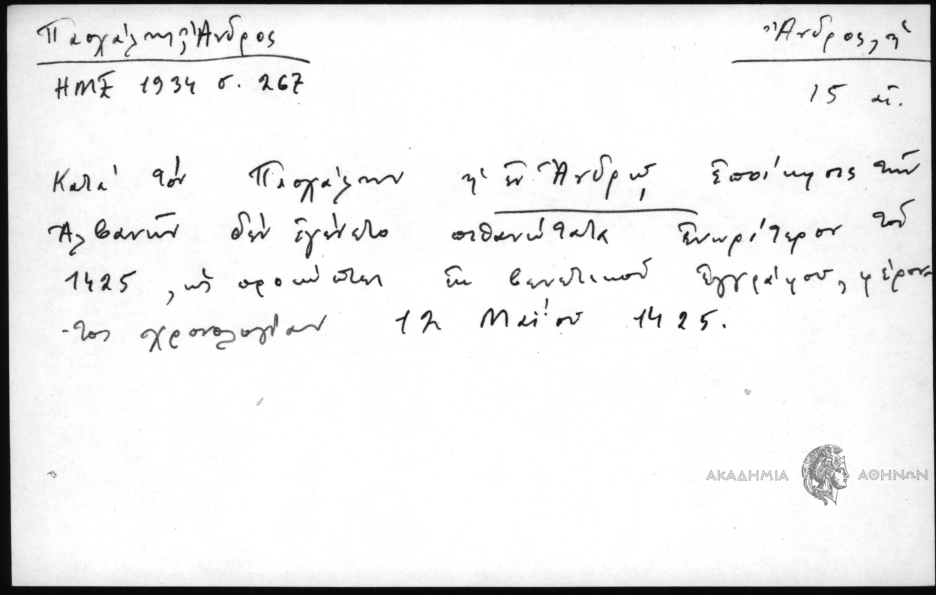 Πασχάλης, Ἄνδρος
ΗΜΣ 1934 σ. 267
Ἄνδρος, ἡ
15 αἰ.
Κατά τόν Πασχάλην ἡ ἐν Ἄνδρῳ ἐποίκησις τῶν
Ἀλβανῶν δέν ἐγένετο πιθανώτατα ἐνωρίτερον τοῦ
1425, ὡς προκύπτει ἐκ βενετικοῦ ἐγγράφου, φέρον-
-τος χρονολογίαν 12 Μαΐου 1425.
ΑΚΑΔΗΜΙΑ ΑΘΗΝΩΝ